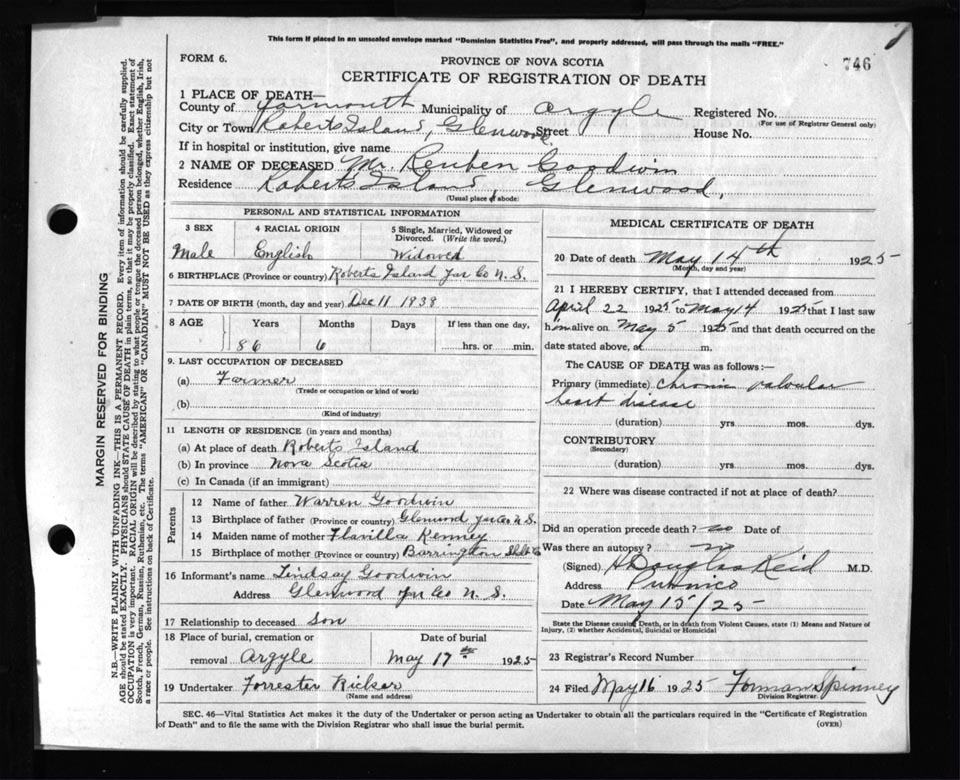 This form if placed in an unsealed envelope marked "Dominion Statistics Free", and properly addressed, will pass through the mails "FREE."
FORM 6.
PROVINCE OF NOVA SCOTIA
746
CERTIFICATE OF REGISTRATION OF DEATH
1 PLACE OF DEATH—
County of Yarmouth Municipality of Argyle Registered No.
(For use of Registrar General only)
City or Town Roberts Island, Glenwood Street House No.
If in hospital or institution, give name
2 NAME OF DECEASED Mr. Reuben Goodwin
Residence Roberts Island, Glenwood,
(Usual place of abode)
MARGIN RESERVED FOR BINDING
N.B.—WRITE PLAINLY WITH UNFADING INK—THIS IS A PERMANENT RECORD. Every item of information should be carefully supplied.
AGE should be stated EXACTLY. PHYSICIANS should STATE CAUSE OF DEATH in plain terms, so that it may be properly classified. Exact statement of
OCCUPATION is very important. RACIAL ORIGIN will be described by stating to what people or tongue the deceased person belonged, whether English, Irish,
Scotch, French, German, Russian, Ruthenian, etc. The terms "AMERICAN" OR "CANADIAN" MUST NOT BE USED as they express citizenship but not
a race or people. See instructions on back of Certificate.
PERSONAL AND STATISTICAL INFORMATION
3 SEX
4 RACIAL ORIGIN
5 Single, Married, Widowed or
Divorced. (Write the word.)
Male
English
Widowed
6 BIRTHPLACE (Province or country) Roberts Island Yar Co N. S.
7 DATE OF BIRTH (month, day and year) Dec 11 1838
8 AGE
Years
Months
Days
If less than one day,
86
6
hrs. or min.
9. LAST OCCUPATION OF DECEASED
(a) Farmer
(Trade or occupation or kind of work)
(b)
(Kind of industry)
11 LENGTH OF RESIDENCE (in years and months)
(a) At place of death Roberts Island
(b) In province Nova Scotia
(c) In Canada (if an immigrant)
Parents
12 Name of father Warren Goodwin
13 Birthplace of father (Province or country) Glenwood Yar Co N. S.
14 Maiden name of mother Flavilla Kenney
15 Birthplace of mother (Province or country) Barrington
16 Informant's name Lindsay Goodwin
Address Glenwood Yar Co N. S.
17 Relationship to deceased Son
18 Place of burial, cremation or
removal Argyle
Date of burial
May 17th 1925
19 Undertaker Forrester Ricker
(Name and address)
MEDICAL CERTIFICATE OF DEATH
20 Date of death May 14th 1925
(Month, day and year)
21 I HEREBY CERTIFY, that I attended deceased from
April 22 1925 to May 14 1925 that I last saw
him alive on May 5 1925 and that death occurred on the
date stated above, at m.
The CAUSE OF DEATH was as follows:—
Primary (immediate) Chronic valvular
heart disease
(duration) yrs mos. dys.
CONTRIBUTORY
(Secondary)
(duration) yrs. mos. dys.
22 Where was disease contracted if not at place of death?
Did an operation precede death? no Date of
Was there an autopsy? no
(Signed) H Douglas Reid M.D.
Address Pubnico
Date May 15/25
State the Disease causing Death, or in death from Violent Causes, state (1) Means and Nature of
Injury, (2) whether Accidental, Suicidal or Homicidal
23 Registrar's Record Number
24 Filed May 16 1925 Forman Spinney
Division Registrar.
SEC. 46—Vital Statistics Act makes it the duty of the Undertaker or person acting as Undertaker to obtain all the particulars required in the "Certificate of Registration
of Death" and to file the same with the Division Registrar who shall issue the burial permit.
(OVER)